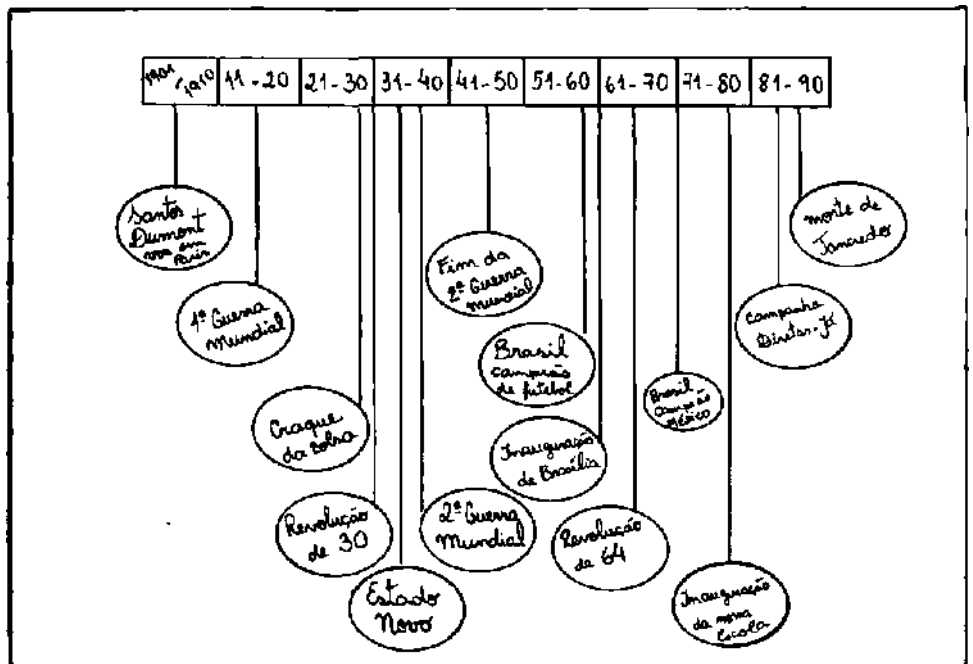 1901-1910 11-20 21-30 31-40 41-50 51-60 61-70 71-80 81-90
Santos
Dumont
voa em
Paris
1ª Guerra
Mundial
Craque
da Bolsa
Revolução
de 30
Estado
Novo
2ª Guerra
Mundial
Fim da
2ª Guerra
Mundial
Brasil
campeão
de futebol
Inauguração
de Brasília
Revolução
de 64
Brasil
Campeão
México
Inauguração
da nossa
Escola
Campanha
Diretas-Já
morte de
Tancredo